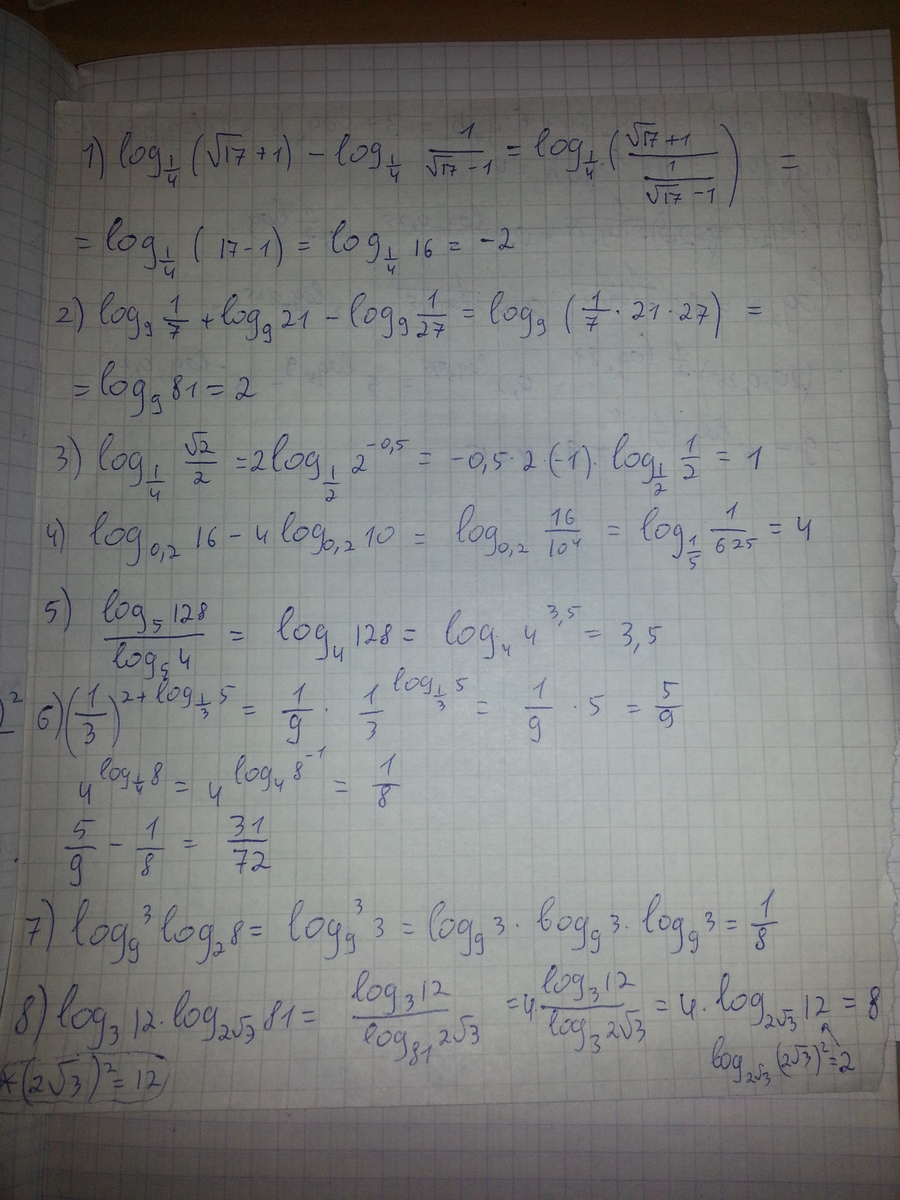 1) log_{1/4} (√17 + 1) − log_{1/4} 1/(√17 − 1) = log_{1/4} ((√17 + 1)/(1/(√17 − 1))) =
= log_{1/4} (17 − 1) = log_{1/4} 16 = −2
2) log_9 1/7 + log_9 21 − log_9 1/27 = log_9 (1/7 · 21 · 27) =
= log_9 81 = 2
3) log_{1/4} √2/2 = 2 log_{1/2} 2^{−0,5} = −0,5 · 2 · (−1) · log_{1/2} 1/2 = 1
4) log_{0,2} 16 − 4 log_{0,2} 10 = log_{0,2} 16/10^4 = log_{1/5} 1/625 = 4
5) log_5 128 / log_5 4 = log_4 128 = log_4 4^{3,5} = 3,5
)^2
6) (1/3)^{2 + log_{1/3} 5} = 1/9 · 1/3^{log_{1/3} 5} = 1/9 · 5 = 5/9
4^{log_{1/4} 8} = 4^{log_4 8^{−1}} = 1/8
5/9 − 1/8 = 31/72
7) log_9^3 log_2 8 = log_9^3 3 = log_9 3 · log_9 3 · log_9 3 = 1/8
8) log_3 12 · log_{2√3} 81 = log_3 12 / log_{81} 2√3 = 4 · log_3 12 / log_3 2√3 = 4 · log_{2√3} 12 = 8
log_{2√3} (2√3)^2 = 2
*(2√3)^2 = 12